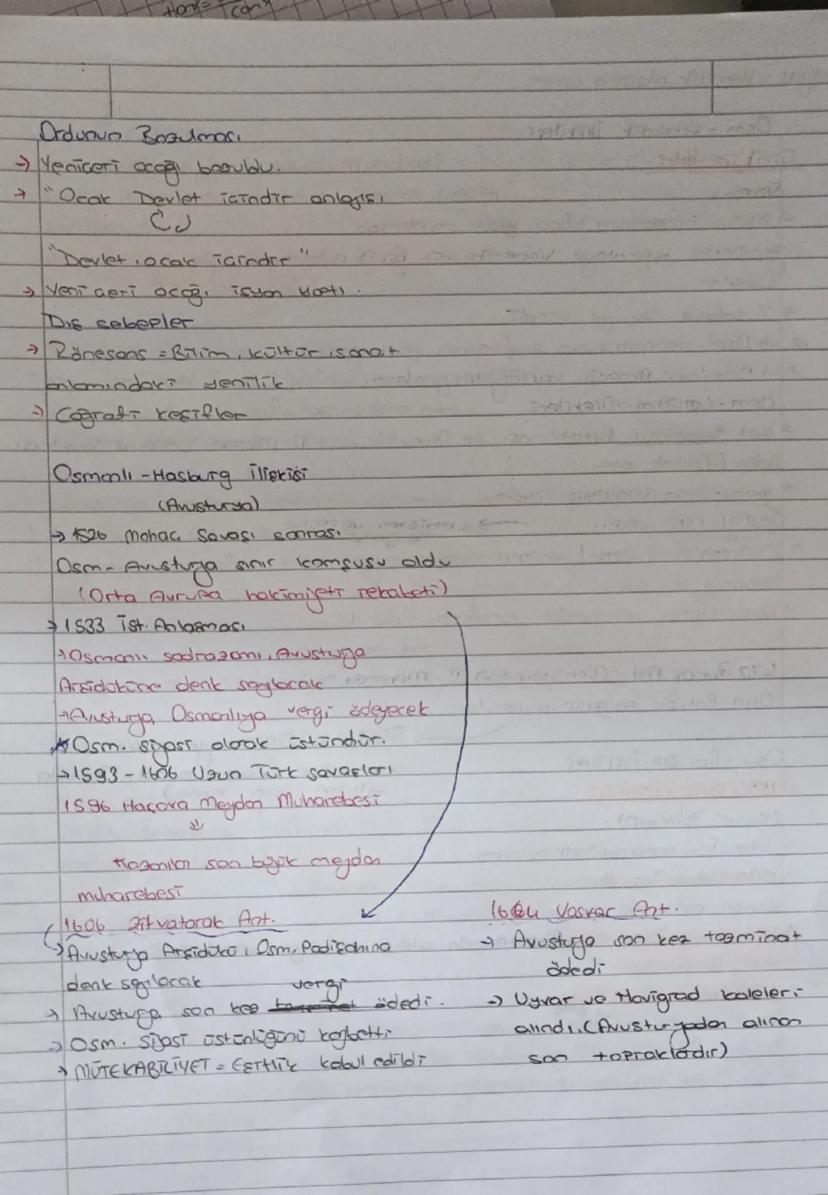 Ordunun Bozulması
→ Yeniçeri ocağı bozuldu.
→ "Ocak Devlet içindir anlayışı
"Devlet, ocak içindir"
→ Yeniçeri ocağı isyan yaptı.
Dış sebepler
→ Rönesans = Bilim, kültür, sanat
anlamındaki yenilik
→ Coğrafi keşifler
Osmanlı - Hasburg ilişkisi
(Avusturya)
→ 1526 Mohaç Savaşı sonrası
Osm- Avusturya sınır komşusu oldu
(Orta Avrupa hakimiyeti rekabeti)
→ 1533 İst. Anlaşması
→ Osmanlı sadrazamı, Avusturya
Arşidüküne denk sayılacak
→ Avusturya Osmanlıya vergi ödeyecek
★ Osm. siyasi olarak üstündür.
→ 1593 - 1606 Uzun Türk savaşları
1596 Haçova Meydan Muharebesi
Kazanılan son büyük meydan
muharebesi
1606 Zitvatorok Ant.
→ Avusturya Arşidükü, Osm. Padişahına
denk sayılacak
→ Avusturya son kez vergi ödedi.
→ Osm. siyasi üstünlüğünü kaybetti
→ MÜTEKABİLİYET = Eşitlik kabul edildi
1664 Vasvar Ant.
→ Avusturya son kez tazminat
ödedi
→ Uyvar ve Novigrad kaleleri
alındı. (Avusturyadan alınan
son topraklardır)